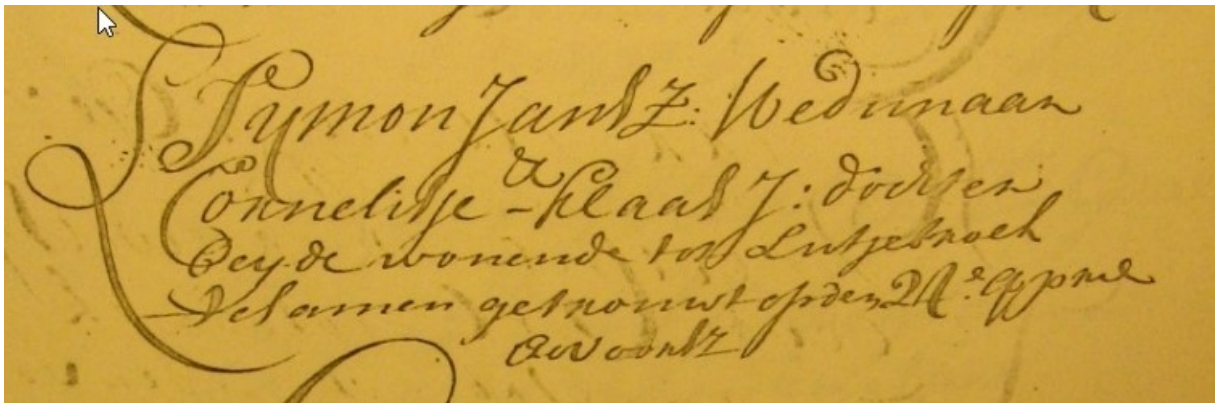 Symon Jansz: Wedunaar
&
Cornelisje - Klaas J: dochter
Beyde wonende tot Lutjebroek
te samen getrouwt op den 21.e April